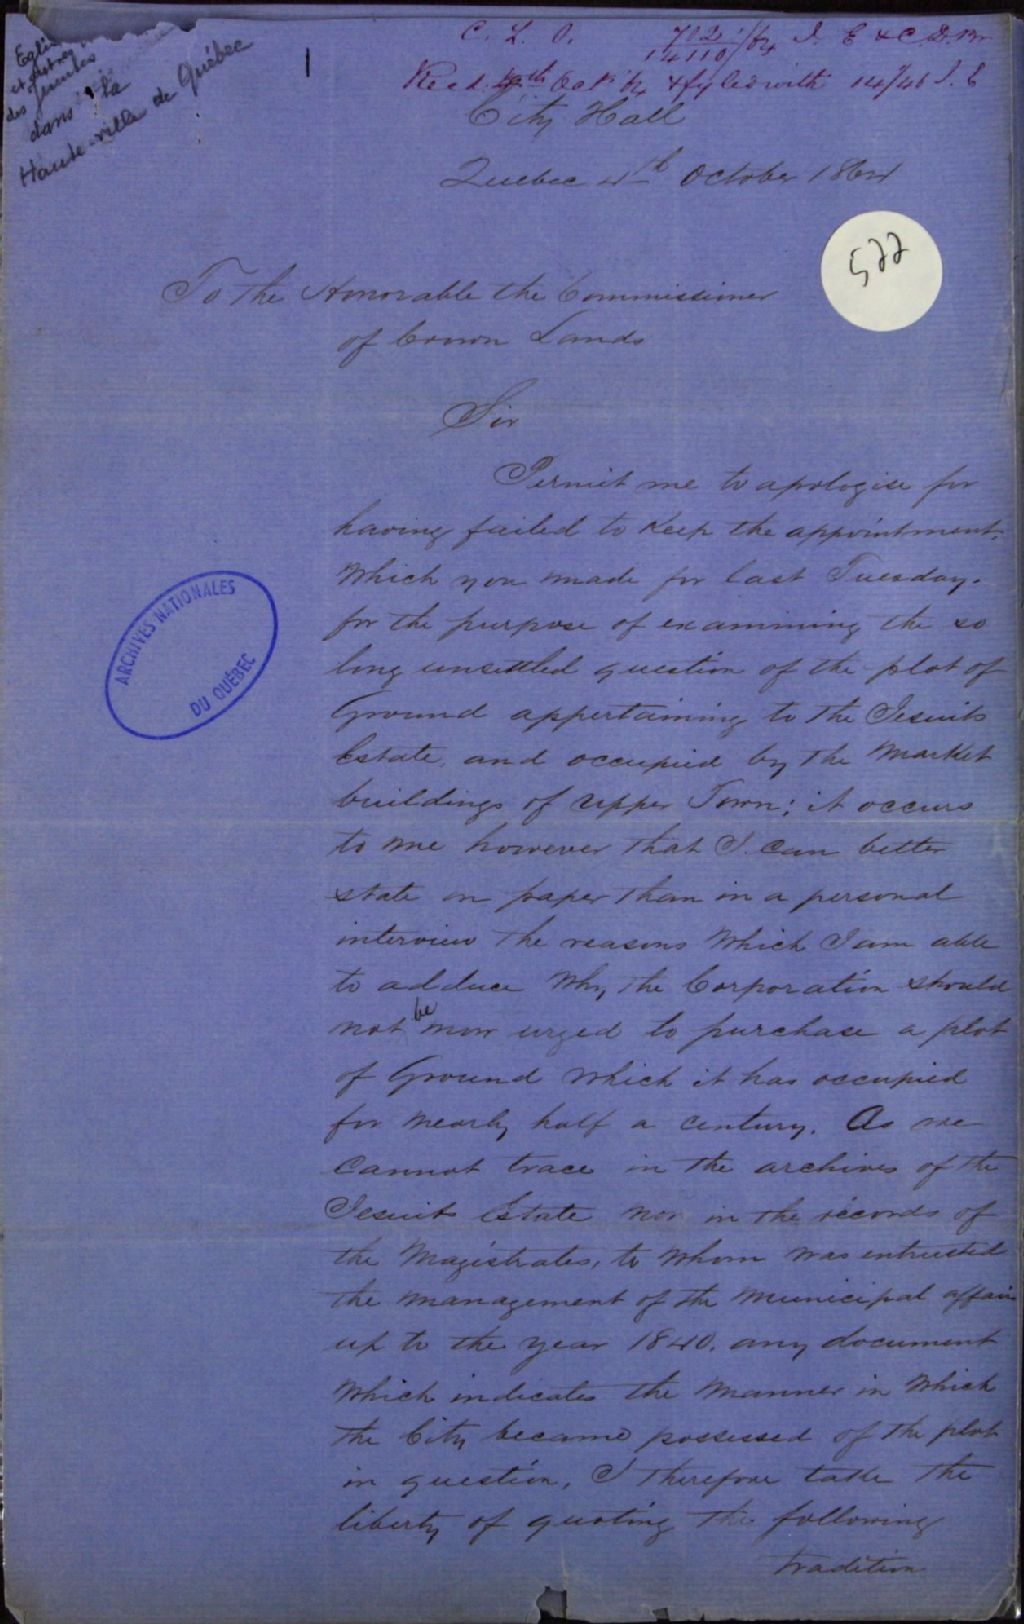 Eglise
et autres
des Jesuites
dans la
Haute-ville de Québec
1
C. L. O. 702/64 J. E & C. D. Br
14110
Recd 10th Oct 64 & fyled with 14/46 J. E
City Hall
Quebec 4th October 1864
522
To the Honorable the Commissioner
of Crown Lands
Sir
Permit me to apologise for
having failed to keep the appointment,
which you made for last Tuesday.
for the purpose of examining the so
long unsettled question of the plot of
Ground appertaining to the Jesuits
Estate, and occupied by the market
buildings of Upper Town; it occurs
to me however that I can better
state on paper than in a personal
interview the reasons which I am able
to adduce why the Corporation should
not be now urged to purchase a plot
of Ground which it has occupied
for nearly half a century. As we
cannot trace in the archives of the
Jesuit Estate nor in the records of
the Magistrates, to whom was entrusted
the management of the Municipal affairs
up to the year 1840. any document
which indicates the manner in which
the City became possessed of the plot
in question, I therefore take the
liberty of quoting the following
tradition
ARCHIVES NATIONALES
DU QUÉBEC